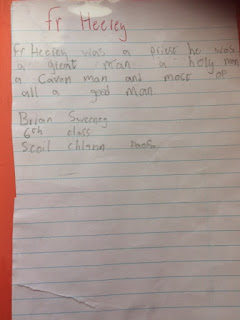 fr Heerey
Fr Heerey was a priest he was
a great man a holy man
a Cavan man and most of
all a good man
Brian Sweeney
6th class
Scoil chlann